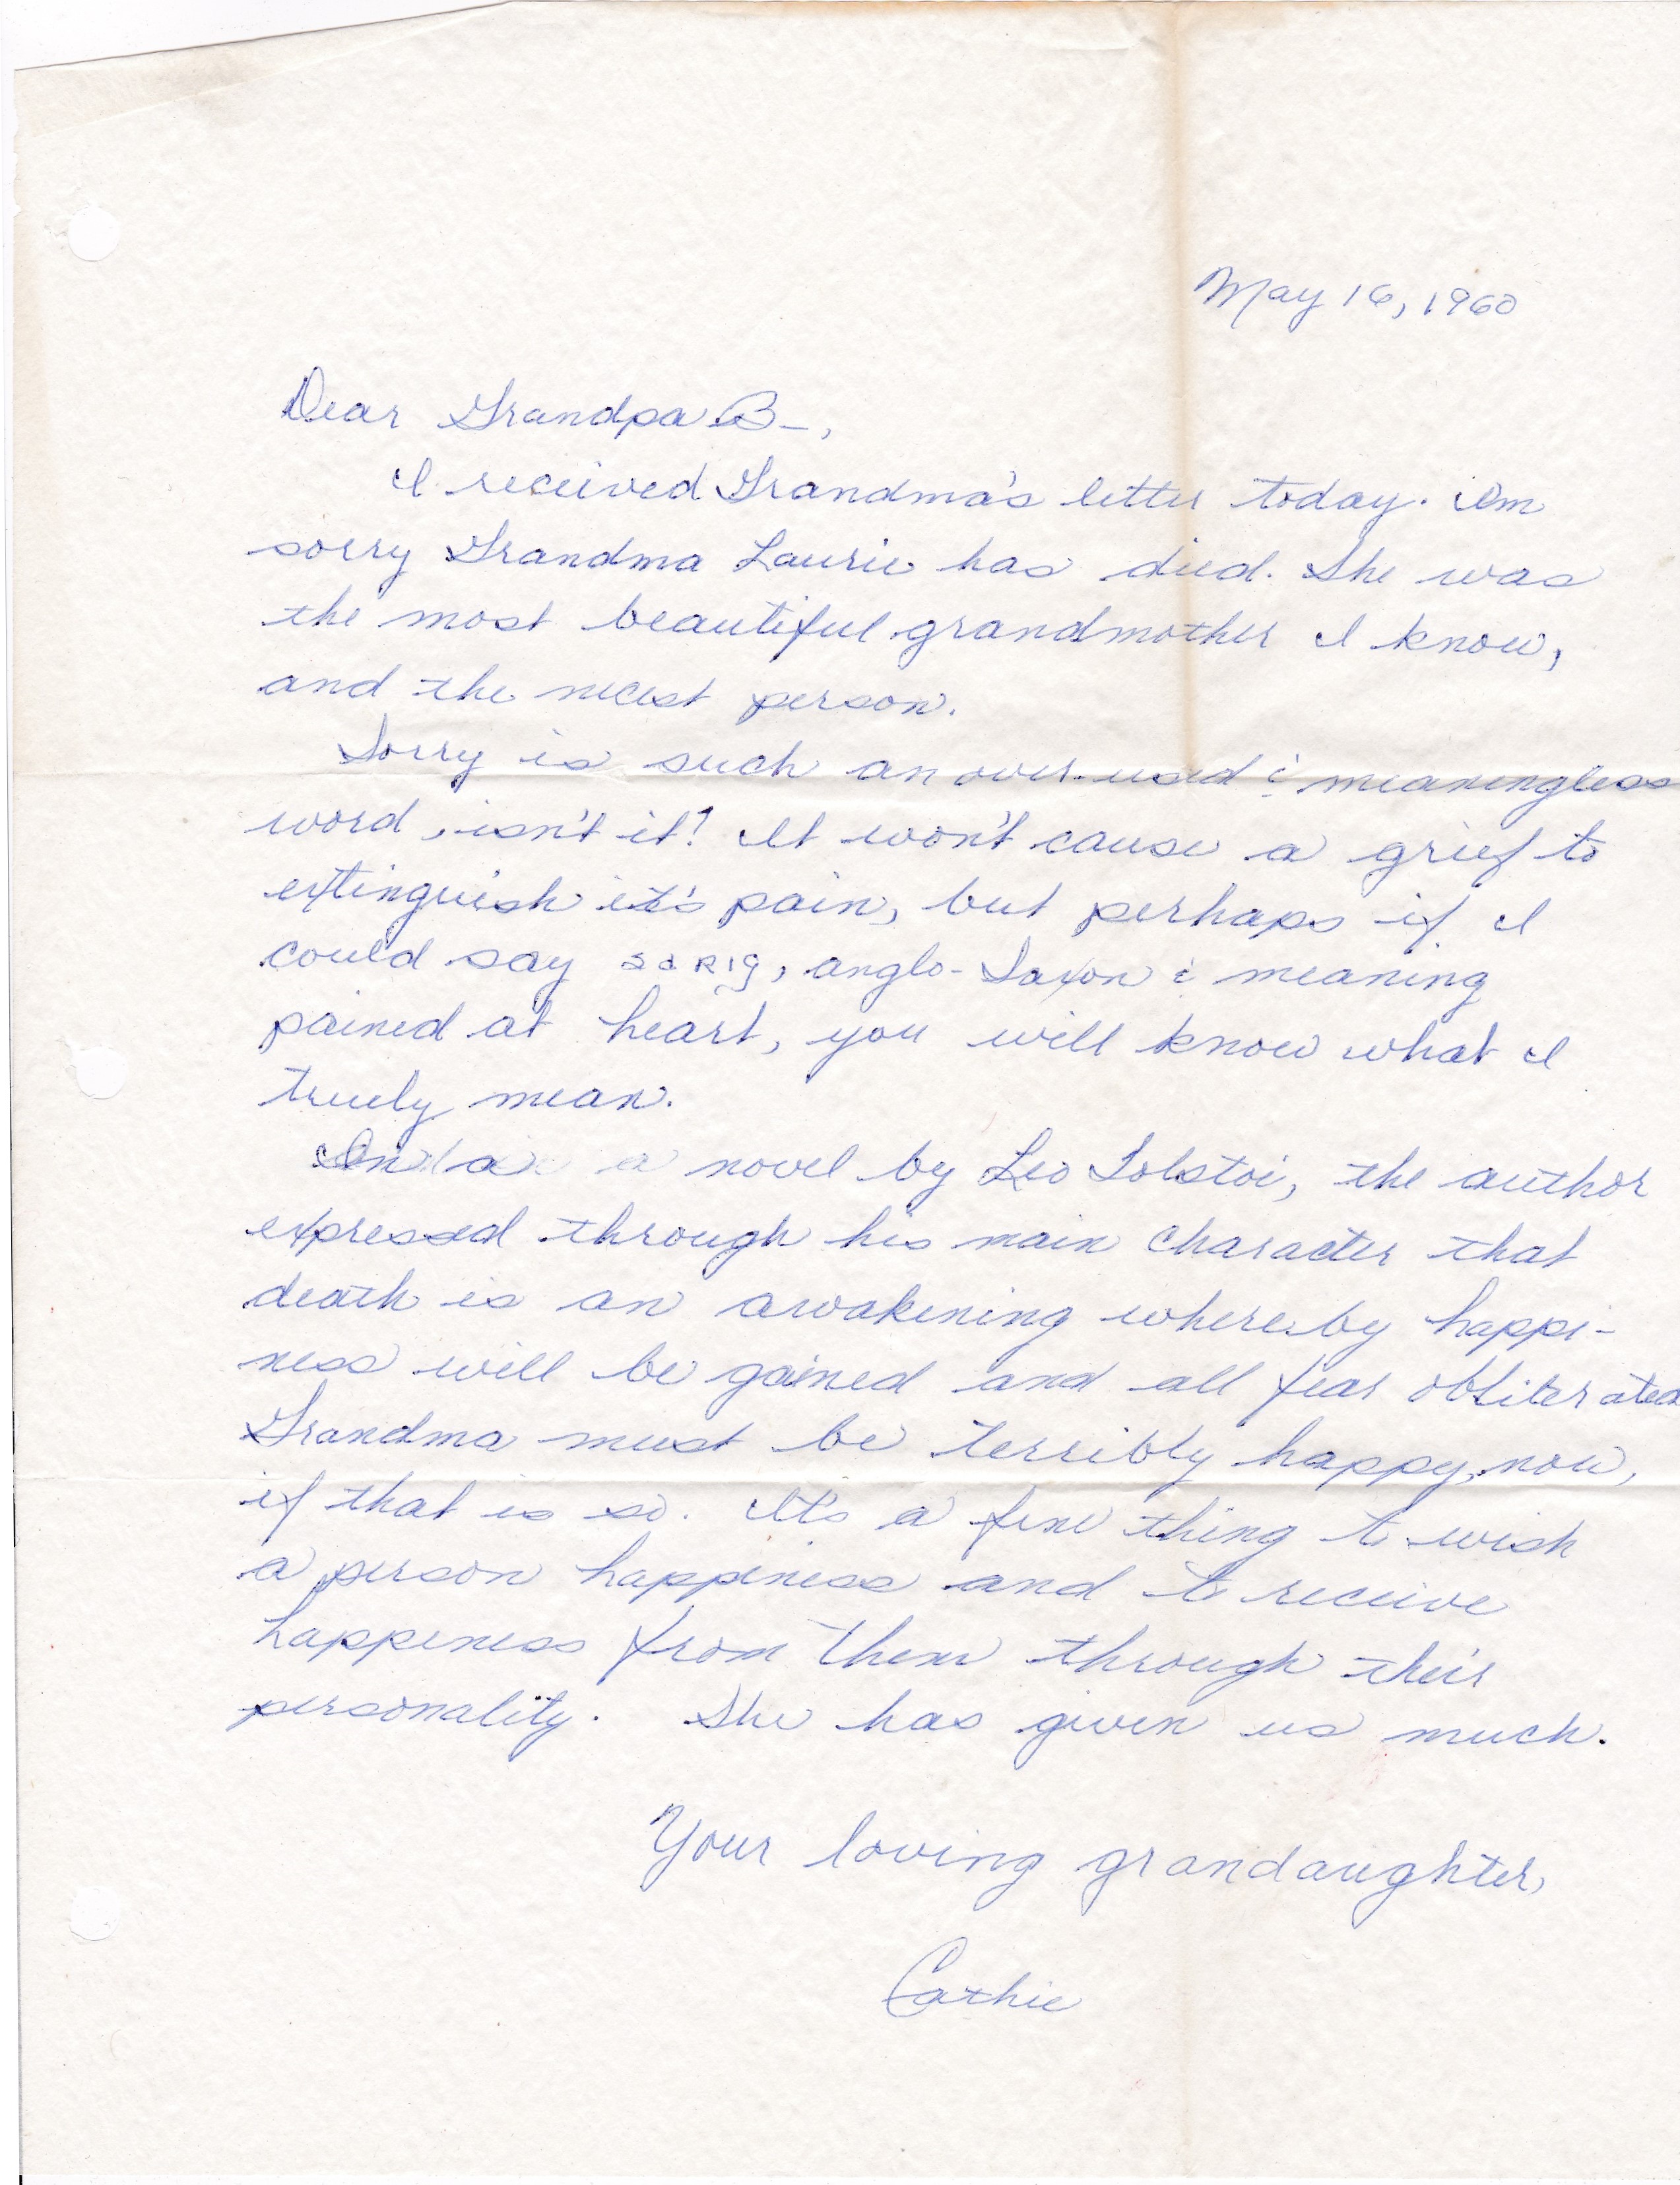 May 16, 1960
Dear Grandpa B—,
I received Grandma's letter today. I'm
sorry Grandma Laurie has died. She was
the most beautiful grandmother I know,
and the nicest person.
Sorry is such an over-used & meaningless
word, isn't it? It won't cause a grief to
extinguish it's pain, but perhaps if I
could say sarig, anglo-Saxon & meaning
pained at heart, you will know what I
truely mean.
In a novel by Leo Tolstoi, the author
expressed through his main character that
death is an awakening whereby happi-
ness will be gained and all fear obliterated
Grandma must be terribly happy, now,
if that is so. It's a fine thing to wish
a person happiness and to receive
happiness from them through their
personality. She has given us much.
Your loving grandaughter,
Cathie